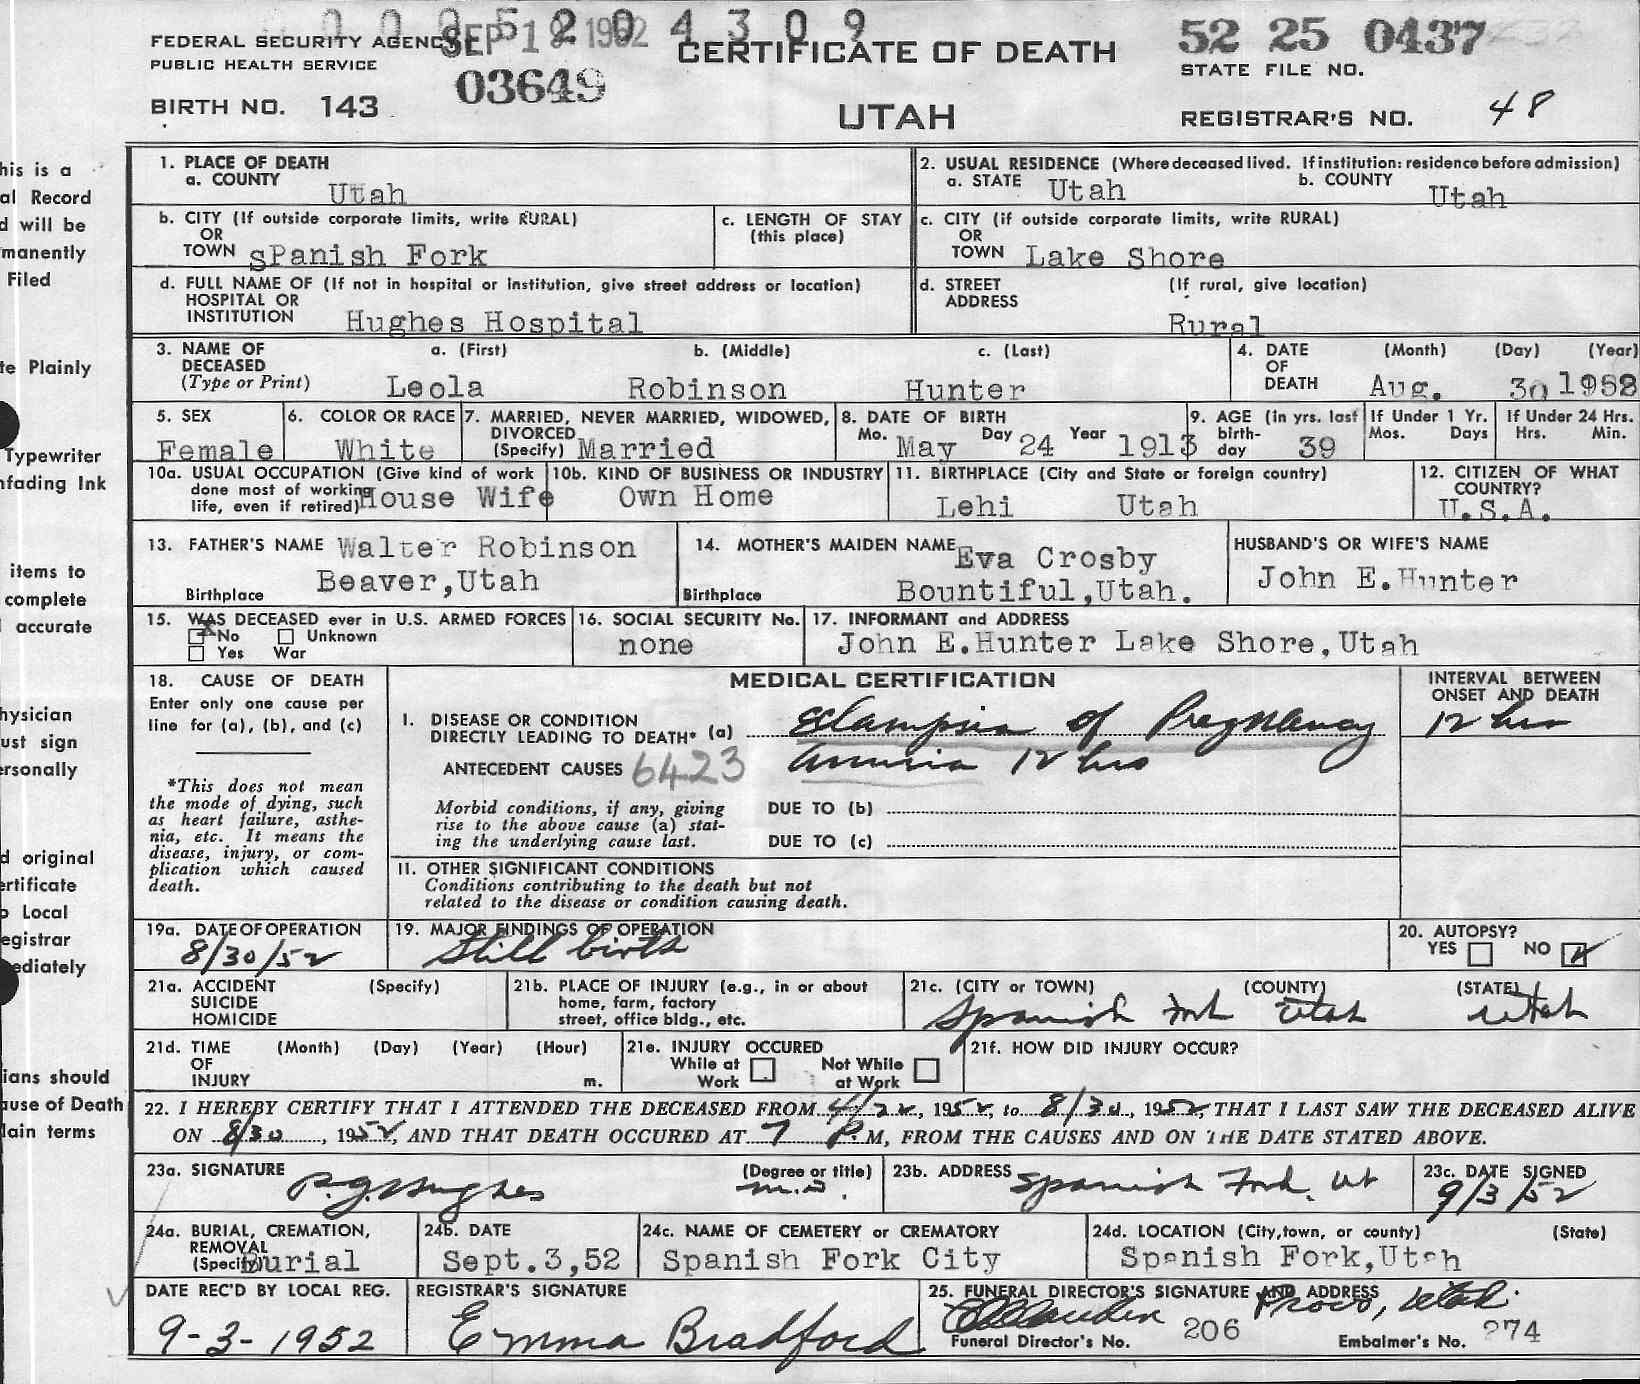 0 0 0 5 2 0 4 3 0 9
SEP 12 1952
FEDERAL SECURITY AGENCY
PUBLIC HEALTH SERVICE
CERTIFICATE OF DEATH
52 25 0437
STATE FILE NO.
03649
BIRTH NO. 143
UTAH
REGISTRAR'S NO. 48
his is a
al Record
d will be
manently
Filed
te Plainly
Typewriter
nfading Ink
items to
complete
accurate
hysician
ust sign
ersonally
d original
ertificate
o Local
egistrar
ediately
ians should
ause of Death
lain terms
1. PLACE OF DEATH
a. COUNTY Utah
2. USUAL RESIDENCE (Where deceased lived. If institution: residence before admission)
a. STATE Utah b. COUNTY Utah
b. CITY (If outside corporate limits, write RURAL)
OR
TOWN sPanish Fork
c. LENGTH OF STAY
(this place)
c. CITY (if outside corporate limits, write RURAL)
OR
TOWN Lake Shore
d. FULL NAME OF (If not in hospital or institution, give street address or location)
HOSPITAL OR
INSTITUTION Hughes Hospital
d. STREET (If rural, give location)
ADDRESS
Rural
3. NAME OF a. (First) b. (Middle) c. (Last)
DECEASED
(Type or Print) Leola Robinson Hunter
4. DATE (Month) (Day) (Year)
OF
DEATH Aug. 30 1952
5. SEX
Female
6. COLOR OR RACE
White
7. MARRIED, NEVER MARRIED, WIDOWED,
DIVORCED
(Specify) Married
8. DATE OF BIRTH
Mo. May Day 24 Year 1913
9. AGE (in yrs. last
birth-
day 39
If Under 1 Yr.
Mos. Days
If Under 24 Hrs.
Hrs. Min.
10a. USUAL OCCUPATION (Give kind of work
done most of working
life, even if retired) House Wife
10b. KIND OF BUSINESS OR INDUSTRY
Own Home
11. BIRTHPLACE (City and State or foreign country)
Lehi Utah
12. CITIZEN OF WHAT
COUNTRY?
U.S.A.
13. FATHER'S NAME Walter Robinson
Birthplace Beaver,Utah
14. MOTHER'S MAIDEN NAME Eva Crosby
Birthplace Bountiful,Utah.
HUSBAND'S OR WIFE'S NAME
John E.Hunter
15. WAS DECEASED ever in U.S. ARMED FORCES
No Unknown
Yes War
16. SOCIAL SECURITY No.
none
17. INFORMANT and ADDRESS
John E.Hunter Lake Shore,Utah
18. CAUSE OF DEATH
Enter only one cause per
line for (a), (b), and (c)
*This does not mean
the mode of dying, such
as heart failure, asthe-
nia, etc. It means the
disease, injury, or com-
plication which caused
death.
MEDICAL CERTIFICATION
INTERVAL BETWEEN
ONSET AND DEATH
I. DISEASE OR CONDITION
DIRECTLY LEADING TO DEATH* (a) Eclampsia of Pregnancy 12 hrs
ANTECEDENT CAUSES 6423 Anuria 12 hrs
Morbid conditions, if any, giving
rise to the above cause (a) stat-
ing the underlying cause last.
DUE TO (b)
DUE TO (c)
II. OTHER SIGNIFICANT CONDITIONS
Conditions contributing to the death but not
related to the disease or condition causing death.
19a. DATE OF OPERATION
8/30/52
19. MAJOR FINDINGS OF OPERATION
Still birth
20. AUTOPSY?
YES NO
21a. ACCIDENT (Specify)
SUICIDE
HOMICIDE
21b. PLACE OF INJURY (e.g., in or about
home, farm, factory
street, office bldg., etc.
21c. (CITY or TOWN) (COUNTY) (STATE)
Spanish Fork Utah Utah
21d. TIME (Month) (Day) (Year) (Hour)
OF
INJURY m.
21e. INJURY OCCURED
While at Not While
Work at Work
21f. HOW DID INJURY OCCUR?
22. I HEREBY CERTIFY THAT I ATTENDED THE DECEASED FROM 4/22, 1952, to 8/30, 1952, THAT I LAST SAW THE DECEASED ALIVE
ON 8/30, 1952, AND THAT DEATH OCCURED AT 7 P.M, FROM THE CAUSES AND ON THE DATE STATED ABOVE.
23a. SIGNATURE (Degree or title)
P.G. Hughes M.D.
23b. ADDRESS Spanish Fork. Ut
23c. DATE SIGNED
9/3/52
24a. BURIAL, CREMATION,
REMOVAL
(Specify) Burial
24b. DATE
Sept.3,52
24c. NAME OF CEMETERY or CREMATORY
Spanish Fork City
24d. LOCATION (City,town, or county) (State)
Spanish Fork,Utah
DATE REC'D BY LOCAL REG.
9-3-1952
REGISTRAR'S SIGNATURE
Emma Bradford
25. FUNERAL DIRECTOR'S SIGNATURE AND ADDRESS
Provo, Utah.
Funeral Director's No. 206 Embalmer's No. 274